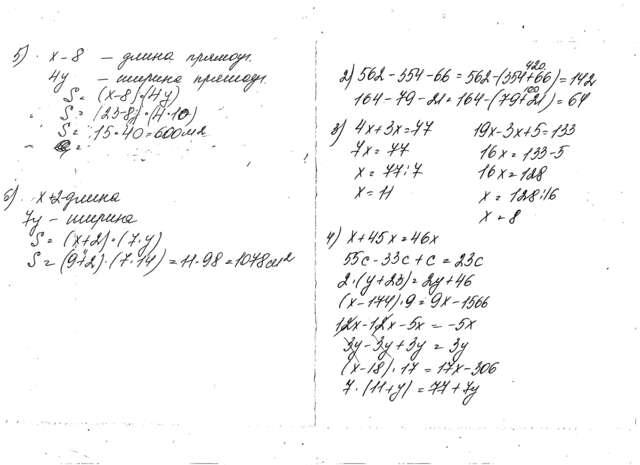 5) x-8 — длина прямоуг.
4y — ширина прямоуг.
S = (x-8)·(4y)
S = (23-8)·(4·10)
S = 15·40 = 600 м2
6) x+2 длина
7y — ширина
S = (x+2)·(7·y)
S = (9+2)·(7·14) = 11·98 = 1078 см2
420
2) 562-354-66 = 562-(354+66) = 142
100
164-79-21 = 164-(79+21) = 64
3) 4x+3x=77 19x-3x+5=133
7x = 77 16x = 133-5
x = 77:7 16x = 128
x = 11 x = 128:16
x = 8
4) x+45x=46x
55c-33c+c = 23c
2·(y+23) = 2y+46
(x-174)·9 = 9x-1566
12x-12x-5x = -5x
3y-3y+3y = 3y
(x-18)·17 = 17x-306
7·(11+y) = 77+7y